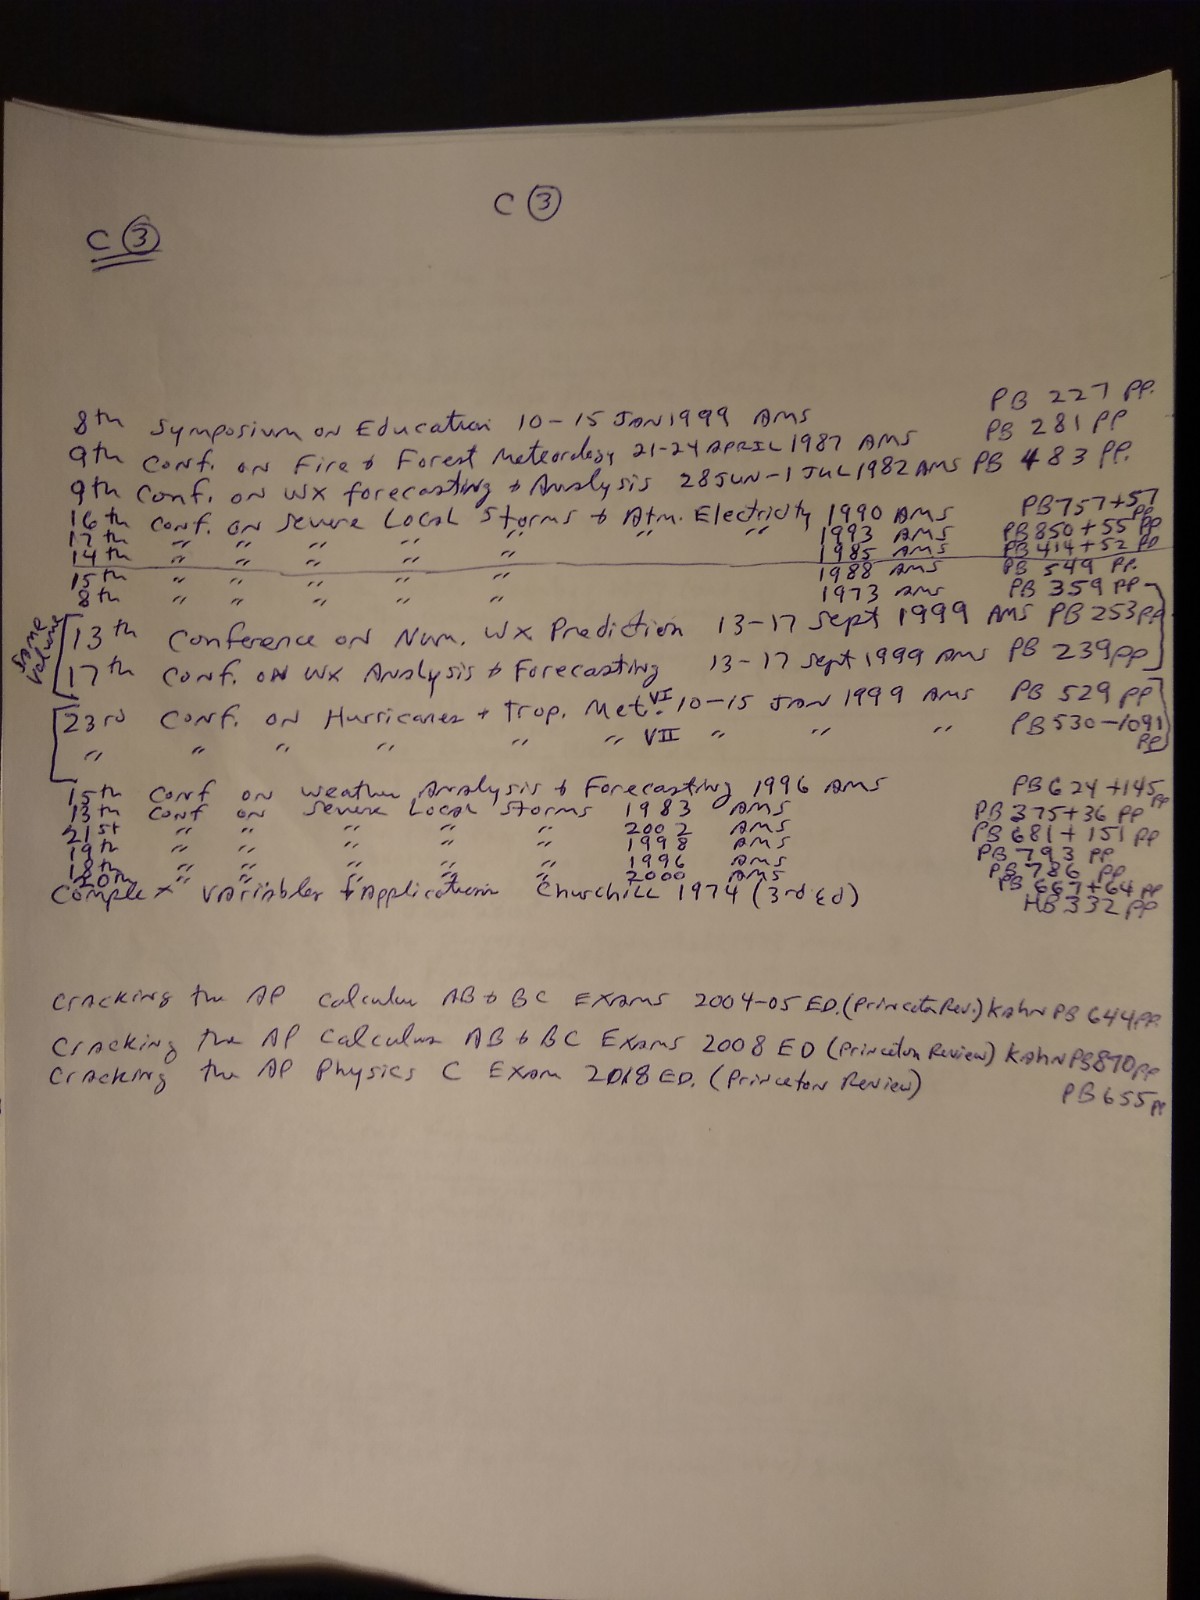 C ③
C ③
8th Symposium on Education 10-15 JAN 1999 AMS PB 227 pp.
9th Conf. on Fire & Forest Meteorology 21-24 APRIL 1987 AMS PB 281 pp
9th Conf. on Wx forecasting & Analysis 28 JUN-1 JUL 1982 AMS PB 483 pp.
16th Conf. on Severe Local Storms & Atm. Electricity 1990 AMS PB 757+57 pp
17th " " " " " " " 1993 AMS PB 850+55 pp
14th " " " " " 1985 AMS PB 414+52 pp
15th " " " " " 1988 AMS PB 549 pp.
8th " " " " " 1973 AMS PB 359 pp
Same Volume
13th Conference on Num. Wx Prediction 13-17 Sept 1999 AMS PB 253 pp
17th Conf. on Wx Analysis & Forecasting 13-17 Sept 1999 AMS PB 239 pp
23rd Conf. on Hurricanes & Trop. Met. VI 10-15 JAN 1999 AMS PB 529 pp
" " " " " " VII " " " PB 530-1091 pp
15th Conf on Weather Analysis & Forecasting 1996 AMS PB 624+145 pp
13th Conf on Severe Local Storms 1983 AMS PB 375+36 pp
21st " " " " " 2002 AMS PB 681+151 pp
19th " " " " " 1998 AMS PB 793 pp
18th " " " " " 1996 AMS PB 786 pp
20th " " " " " 2000 AMS PB 667+64 pp
Complex Variables & Applications Churchill 1974 (3rd Ed) HB 332 pp
Cracking the AP Calculus AB & BC Exams 2004-05 ED. (Princeton Rev.) Kahn PB 644 pp
Cracking the AP Calculus AB & BC Exams 2008 ED (Princeton Review) Kahn PB 870 pp
Cracking the AP Physics C Exam 2018 ED. (Princeton Review) PB 655 pp